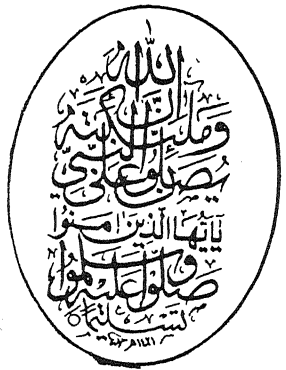 إن الله
وملائكته
يصلون على النبي
يأيها الذين امنوا
صلوا عليه وسلموا
تسليما